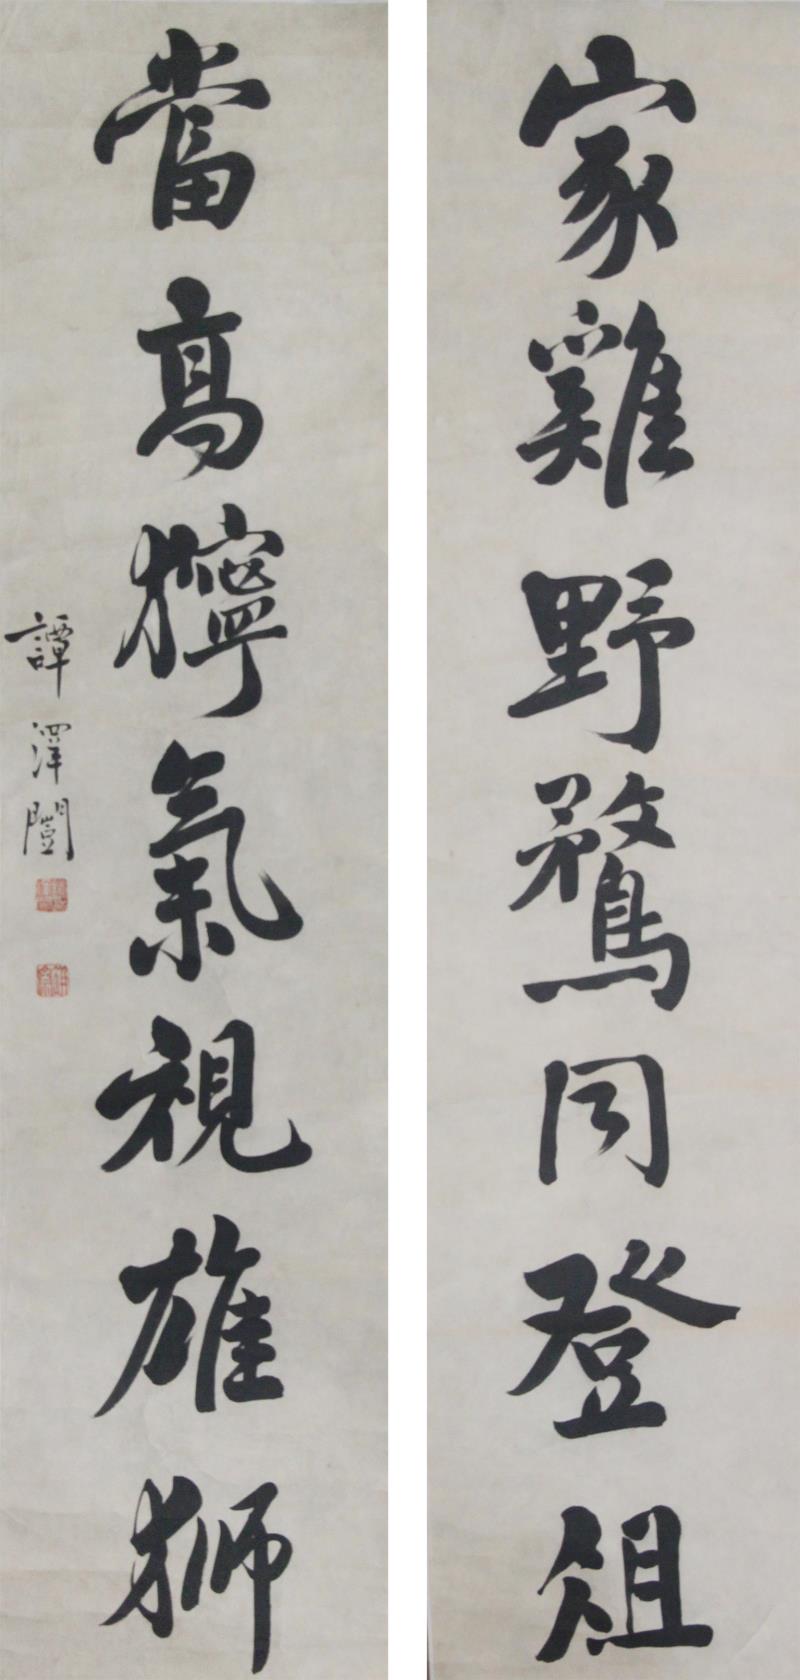 家雞野鶩同登俎
當高獰氣視雄獅
譚澤闓